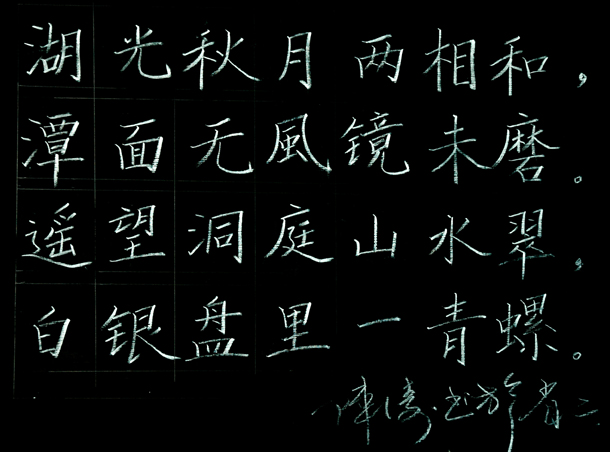 湖光秋月两相和，
潭面无風镜未磨。
遥望洞庭山水翠，
白银盘里一青螺。